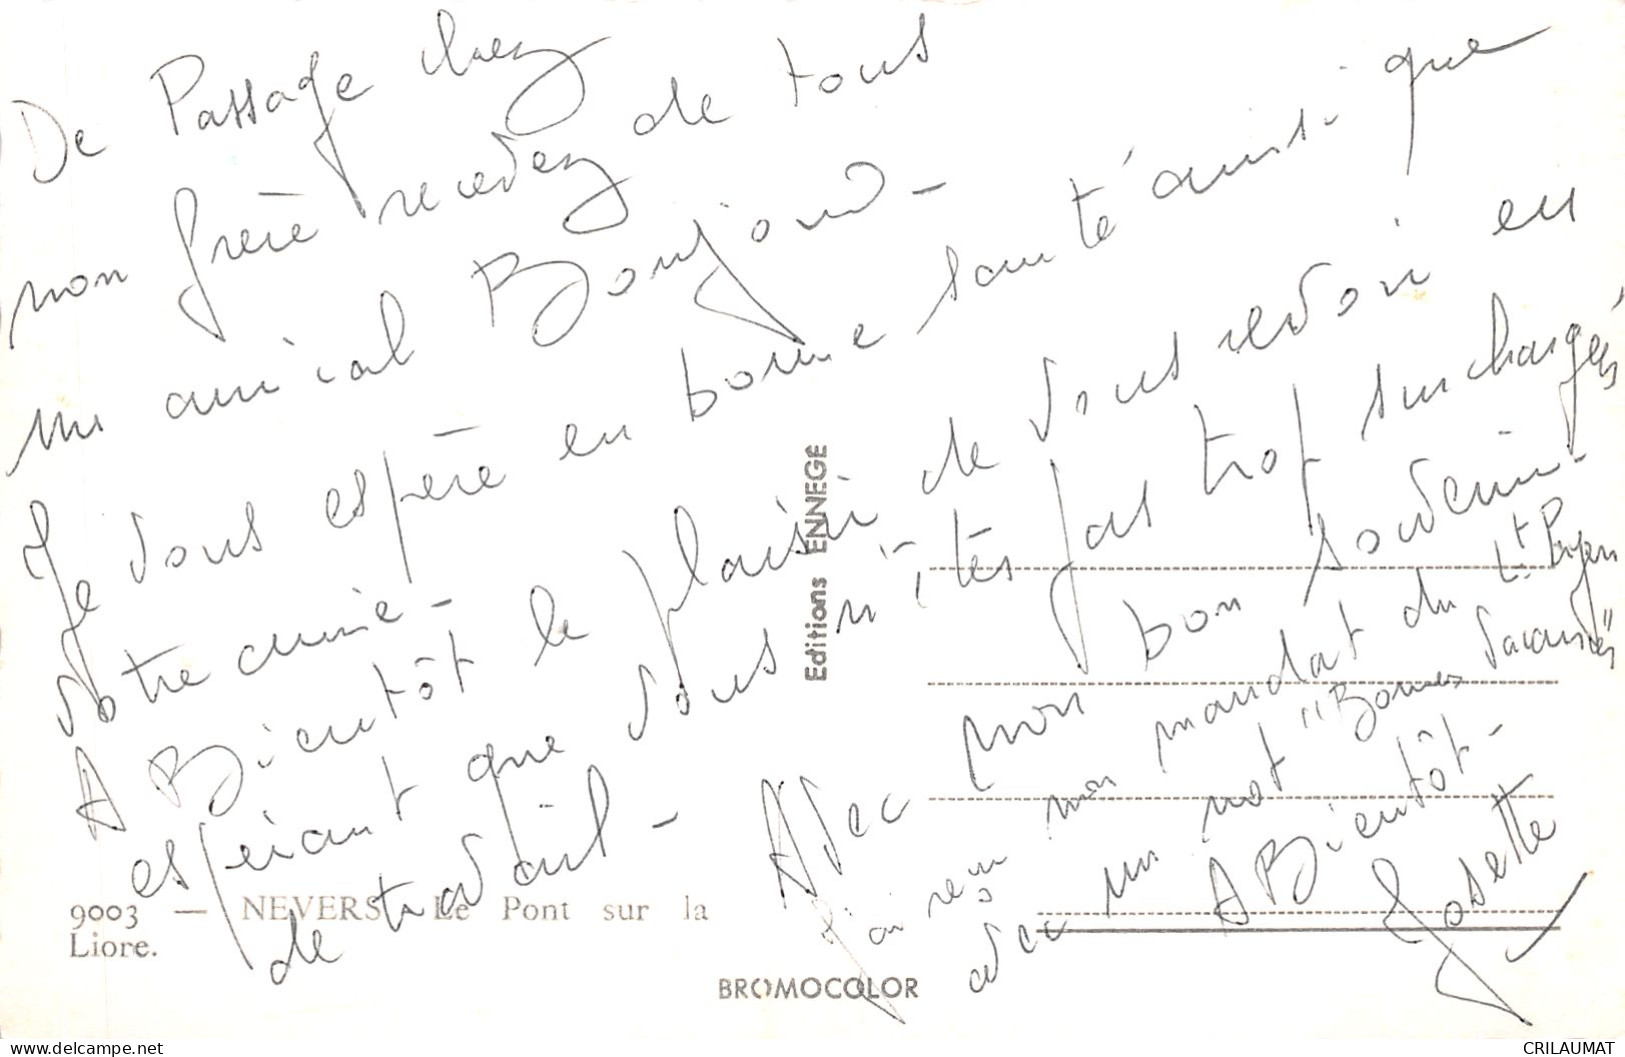 De Passage chez
mon frère recevez de tous
un amical Bonjour -
Je vous espère en bonne santé ainsi que
votre amie -
A Bientôt le plaisir de vous revoir en
espérant que vous n'êtes pas trop surchargés
de travail - Avec mon bon souvenir -
j'ai reçu mon mandat du Lt Payeur
avec un mot "Bonnes Vacances"
A Bientôt -
Josette
Editions ENNEGE
9003 — NEVERS Le Pont sur la
Liore.
BROMOCOLOR
https://www.delcampe.net
CRILAUMAT